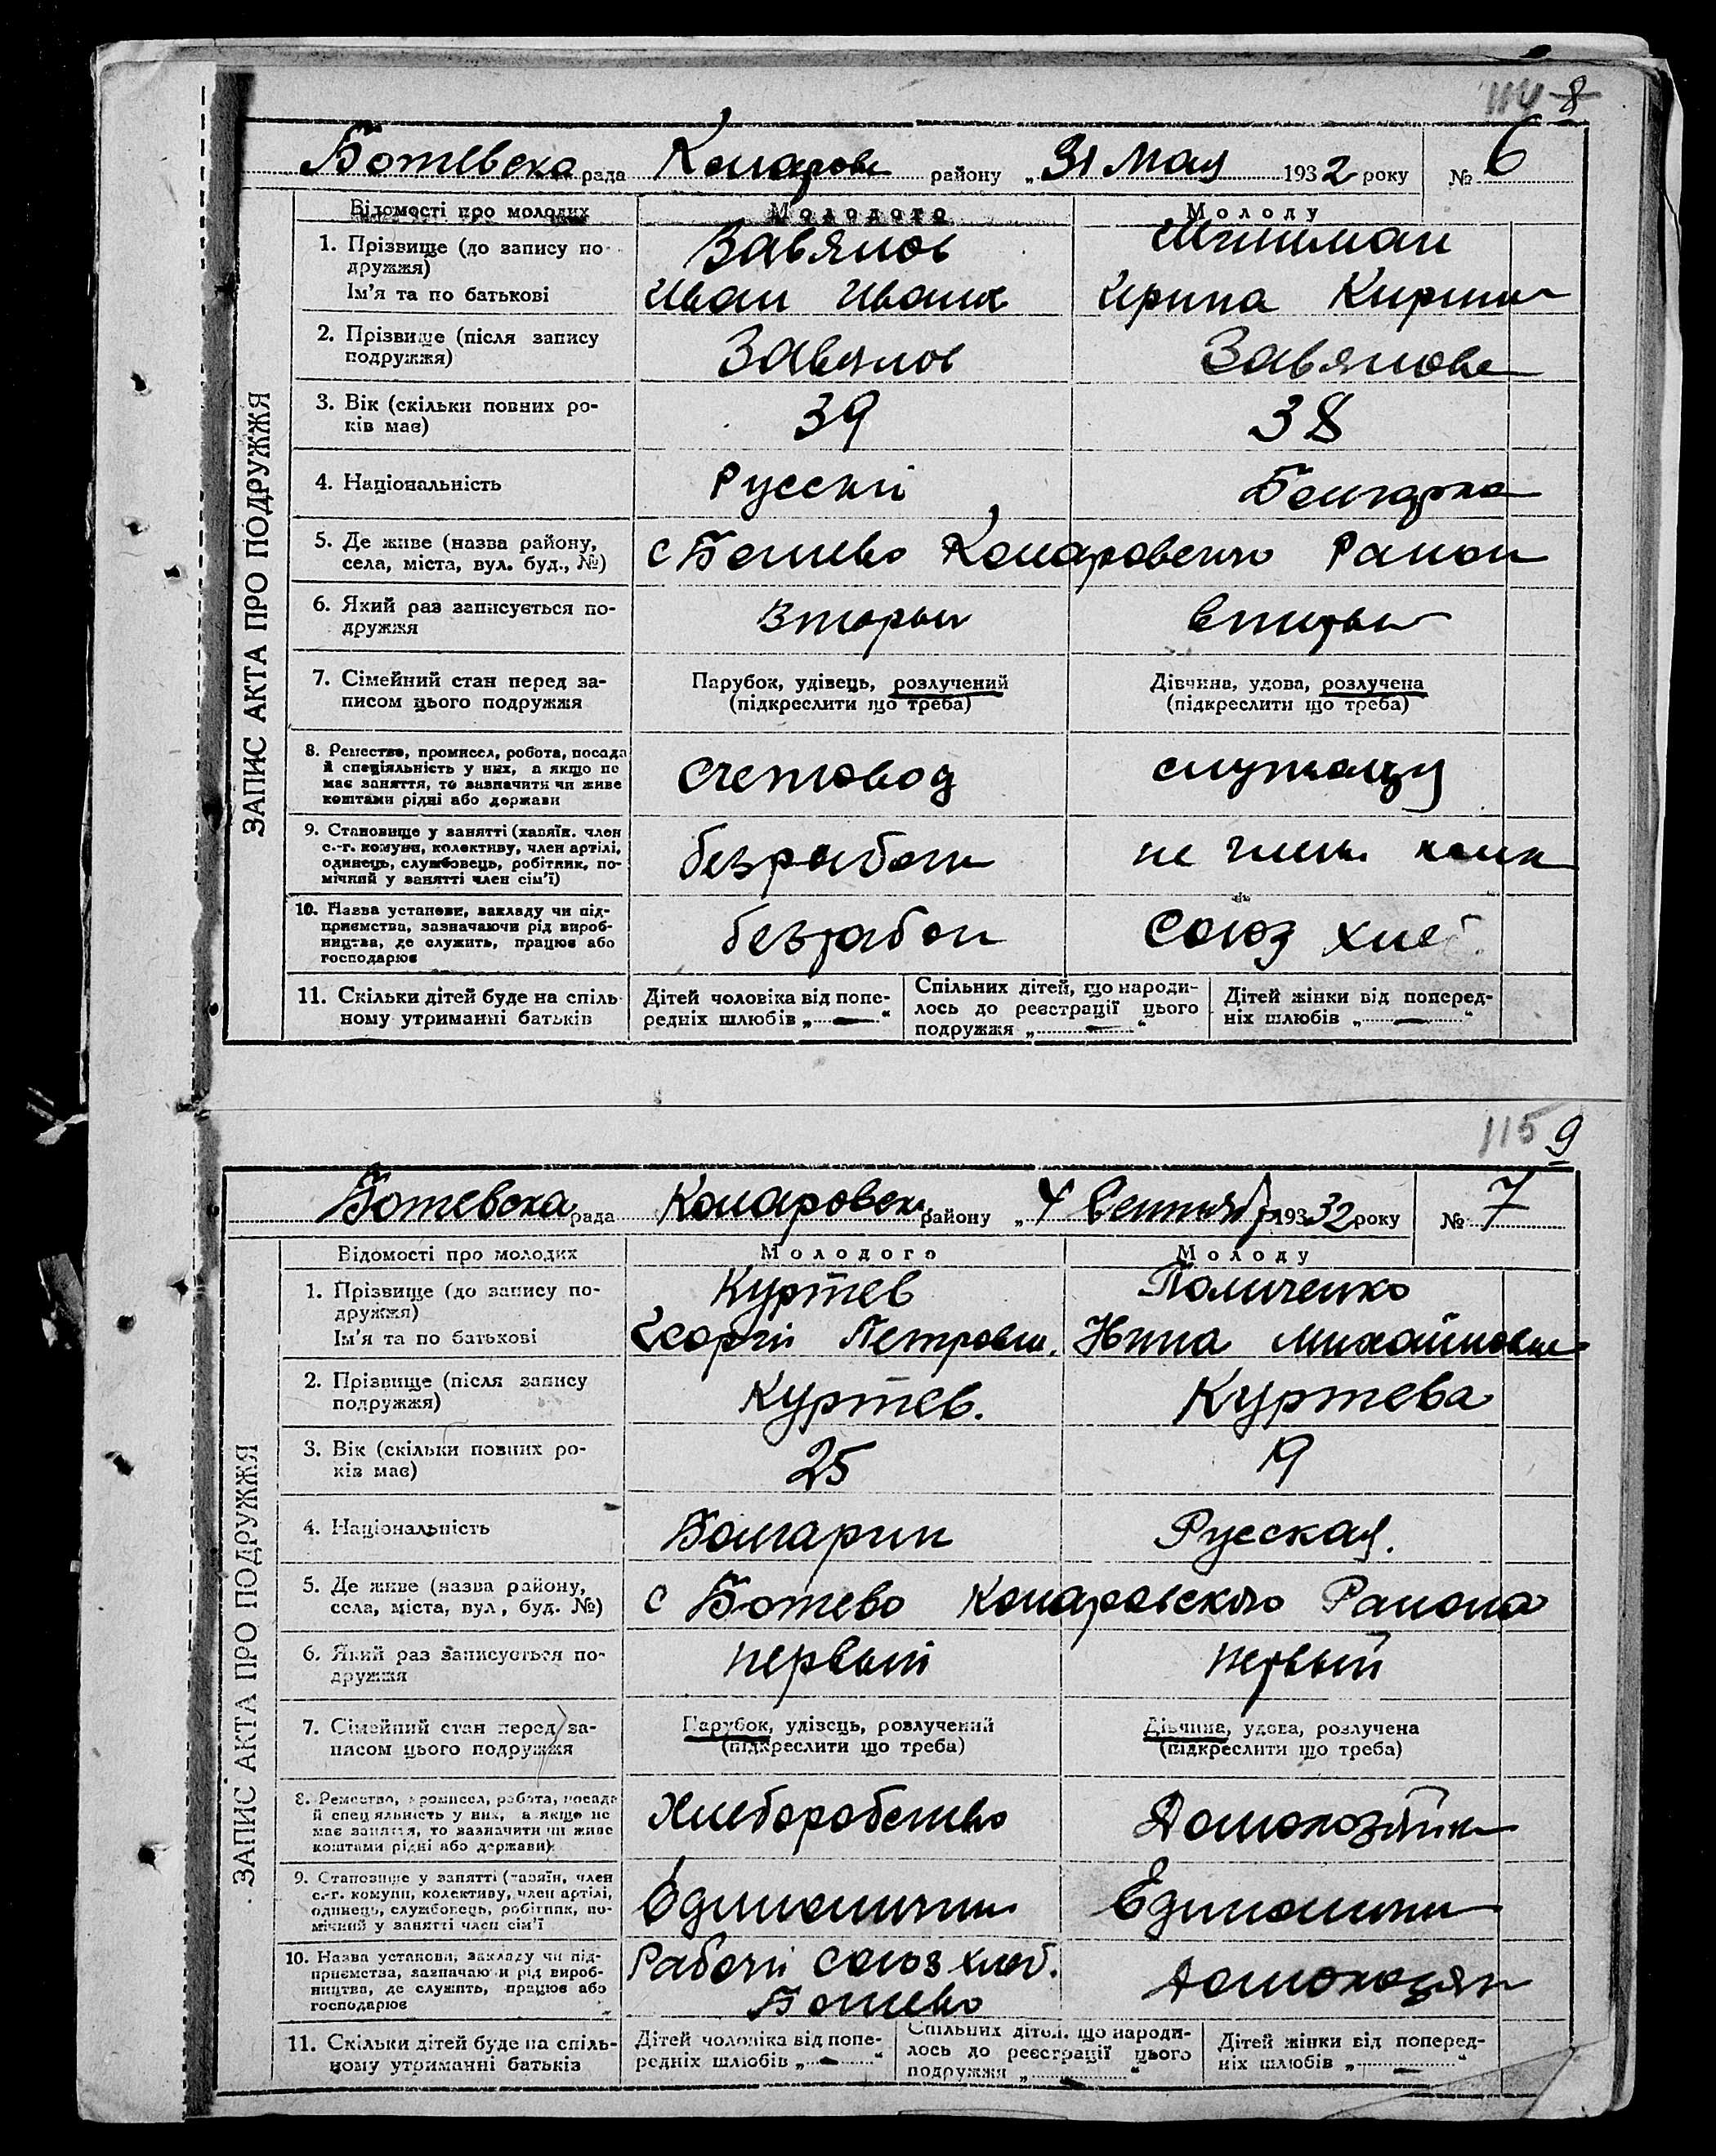 114 8
Ботевска рада Коларовс району „31 Мая 1932 року № 6
Відомості про молодих Молодого Молоду
1. Прізвище (до запису по-
дружжя)
Завялов
Ім'я та по батькові
Иван Иванов Ирина Кирилл
2. Прізвище (після запису
подружжя)
Завялов Завялова
3. Вік (скільки повних ро-
ків має)
39 38
4. Національність Русскі Болгарка
5. Де живе (назва району,
села, міста, вул. буд., №)
с Ботево Коларовского Район
6. Який раз записується по-
дружжя
Вторый вторый
7. Сімейний стан перед за-
писом цього подружжя
Парубок, удівець, розлучений
(підкреслити що треба)
Дівчина, удова, розлучена
(підкреслити що треба)
8. Ремество, промисел, робота, посада
й спеціяльність у них, а якщо не
має заняття, то зазначити чи живе
коштами рідні або держави
счетовод служащ
9. Становище у занятті (хазяїн, член
с.-г. комуни, колективу, член артілі,
одинець, службовець, робітник, по-
мічний у занятті член сім'ї)
безработн не член
10. Назва установи, закладу чи під-
приємства, зазначаючи рід вироб-
ництва, де служить, працює або
господарює
безработн Союз хлеб.
11. Скільки дітей буде на спіль-
ному утриманні батьків
Дітей чоловіка від попе-
редніх шлюбів „—“
Спільних дітей, що народи-
лось до реєстрації цього
подружжя „—“
Дітей жінки від поперед-
ніх шлюбів „—“
ЗАПИС АКТА ПРО ПОДРУЖЖЯ
115 9
Ботевска рада Коларовск району „4 Сентября 19332 року № 7
Відомості про молодих Молодого Молоду
1. Прізвище (до запису по-
дружжя)
Куртев Поличенко
Ім'я та по батькові
Георгіі Петрович. Нина Михайловна
2. Прізвище (після запису
подружжя)
Куртев. Куртева
3. Вік (скільки повних ро-
ків має)
25 19
4. Національність Болгарин Русская.
5. Де живе (назва району,
села, міста, вул, буд. №)
с Ботево Коларовского Района
6. Який раз записується по-
дружжя
первый первый
7. Сімейний стан перед за-
писом цього подружжя
Парубок, удівець, розлучений
(підкреслити що треба)
Дівчина, удова, розлучена
(підкреслити що треба)
8. Ремество, промисел, робота, посада
й спеціяльність у них, а якщо не
має заняття, то зазначити чи живе
коштами рідні або держави)
Хлеборобство Домохозяйк
9. Становище у занятті (хазяїн, член
с.-г. комуни, колективу, член артілі,
одинець, службовець, робітник, по-
мічний у занятті член сім'ї
Единоличн Единоличн
10. Назва установи, закладу чи під-
приємства, зазначаючи рід вироб-
ництва, де служить, працює або
господарює
Рабочі союз хлеб.
Ботево
Домохозяй
11. Скільки дітей буде на спіль-
ному утриманні батьків
Дітей чоловіка від попе-
редніх шлюбів „—“
Спільних дітей, що народи-
лось до реєстрації цього
подружжя „—“
Дітей жінки від поперед-
ніх шлюбів „—“
ЗАПИС АКТА ПРО ПОДРУЖЖЯ